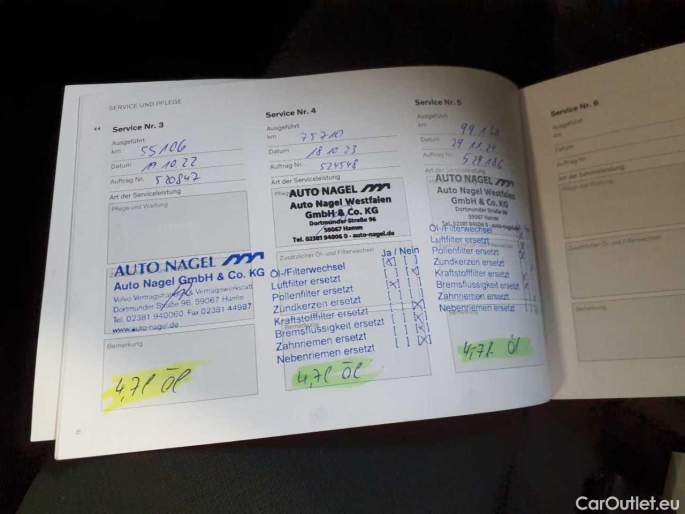 SERVICE UND PFLEGE
Service Nr. 3
Ausgeführt
km 55106
Datum 10.22
Auftrag Nr. 520847
Art der Serviceleistung
Pflege und Wartung
AUTO NAGEL
Auto Nagel GmbH & Co. KG
Volvo Vertragshändler Vertragswerkstatt
Dortmunder Straße 96, 59067 Hamm
Tel. 02381 940060, Fax 02381 44987
www.auto-nagel.de
Bemerkung
4,7l Öl
8
Service Nr. 4
Ausgeführt
km 75710
Datum 18.10.23
Auftrag Nr. 524548
Art der Serviceleistung
AUTO NAGEL
Auto Nagel Westfalen
GmbH & Co. KG
Dortmunder Straße 96
59067 Hamm
Tel. 02381 94006 0 - auto-nagel.de
Zusätzlicher Öl- und Filterwechsel
Ja / Nein
Öl-/Filterwechsel
Luftfilter ersetzt
Pollenfilter ersetzt
Zündkerzen ersetzt
Kraftstofffilter ersetzt
Bremsflüssigkeit ersetzt
Zahnriemen ersetzt
Nebenriemen ersetzt
4,7l Öl
Service Nr. 5
Ausgeführt
km
Datum 29.11.24
Auftrag Nr.
Art der Serviceleistung
AUTO NAGEL
Auto Nagel Westfalen
GmbH & Co. KG
Dortmunder Straße 96
59067 Hamm
Tel. 02381 94006 0 - auto-nagel.de
Öl-/Filterwechsel
Luftfilter ersetzt
Pollenfilter ersetzt
Zündkerzen ersetzt
Kraftstofffilter ersetzt
Bremsflüssigkeit ersetzt
Zahnriemen ersetzt
Nebenriemen ersetzt
4,7l Öl
Service Nr. 6
Ausgeführt
km
Datum
Auftrag Nr.
Art der Serviceleistung
Pflege und Wartung
Zusätzlicher Öl- und Filterwechsel
Bemerkung
CarOutlet.eu